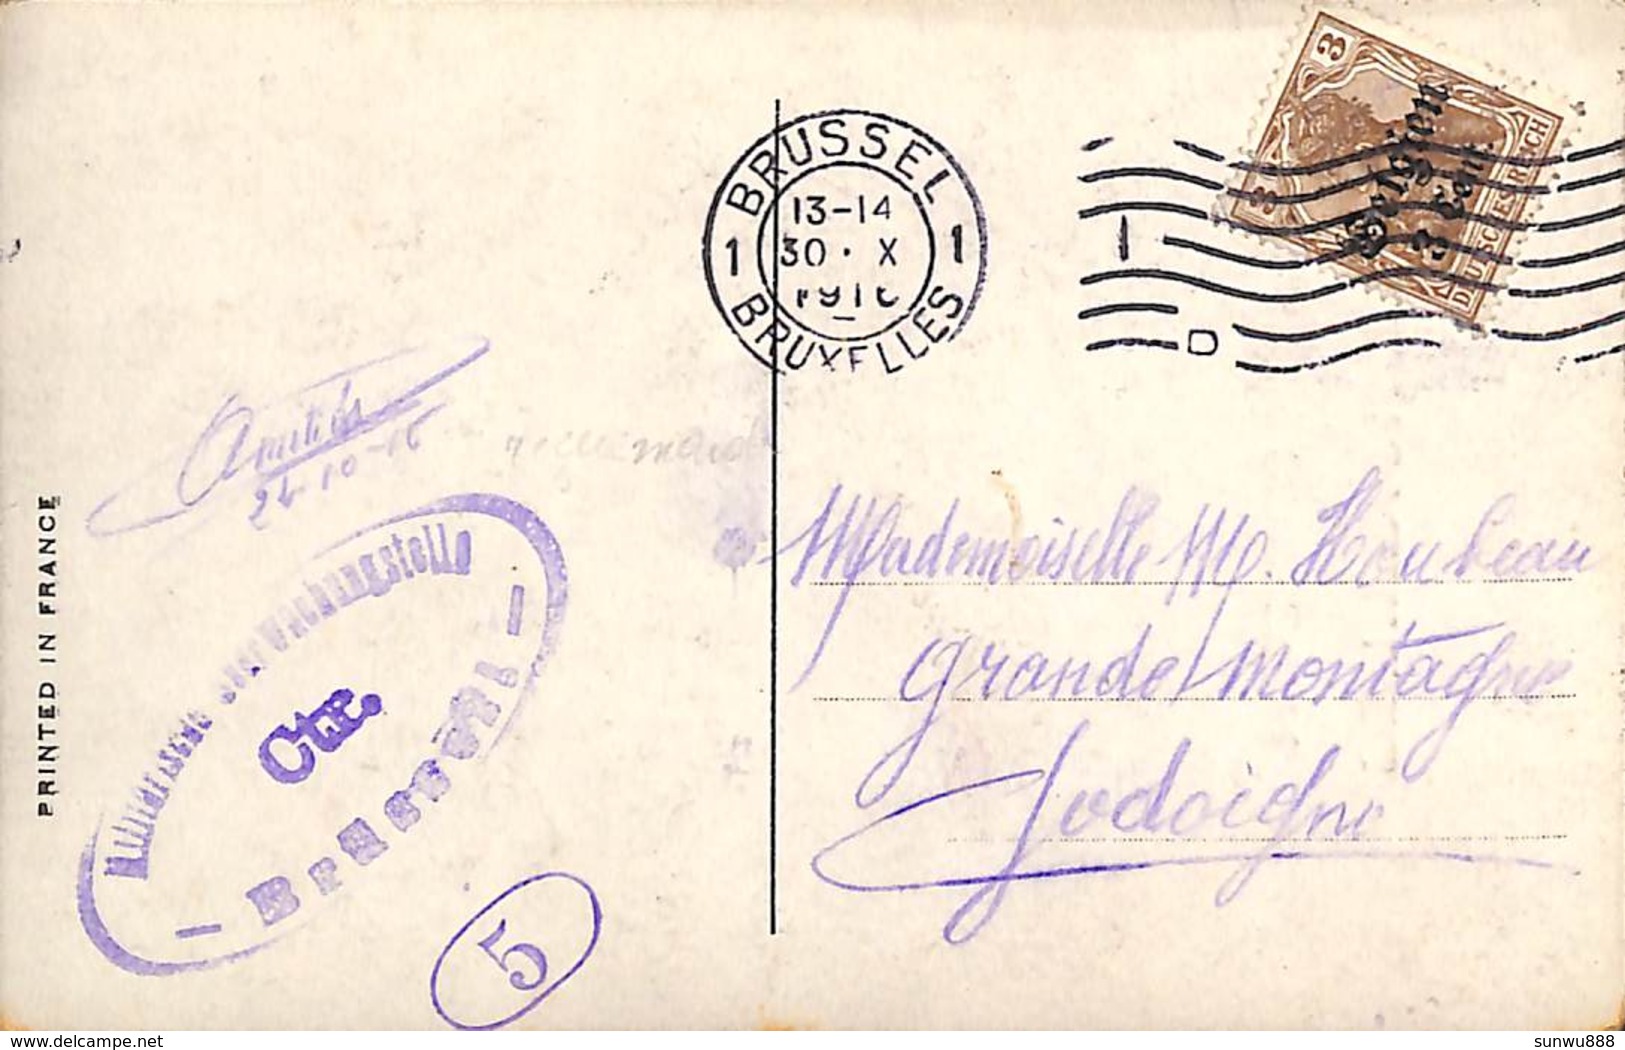 BRUSSEL
1 13-14 1
30 · X
BRUXELLES
3 3
Belgien
3 Cent.
DEUTSCHES REICH
24-10-16
PRINTED IN FRANCE
Militärische Überwachungsstelle
Ctr.
— Brüssel I —
5
Mademoiselle M. Houbeau
grande montagne
Jodoigne
delcampe.net
sunwu888